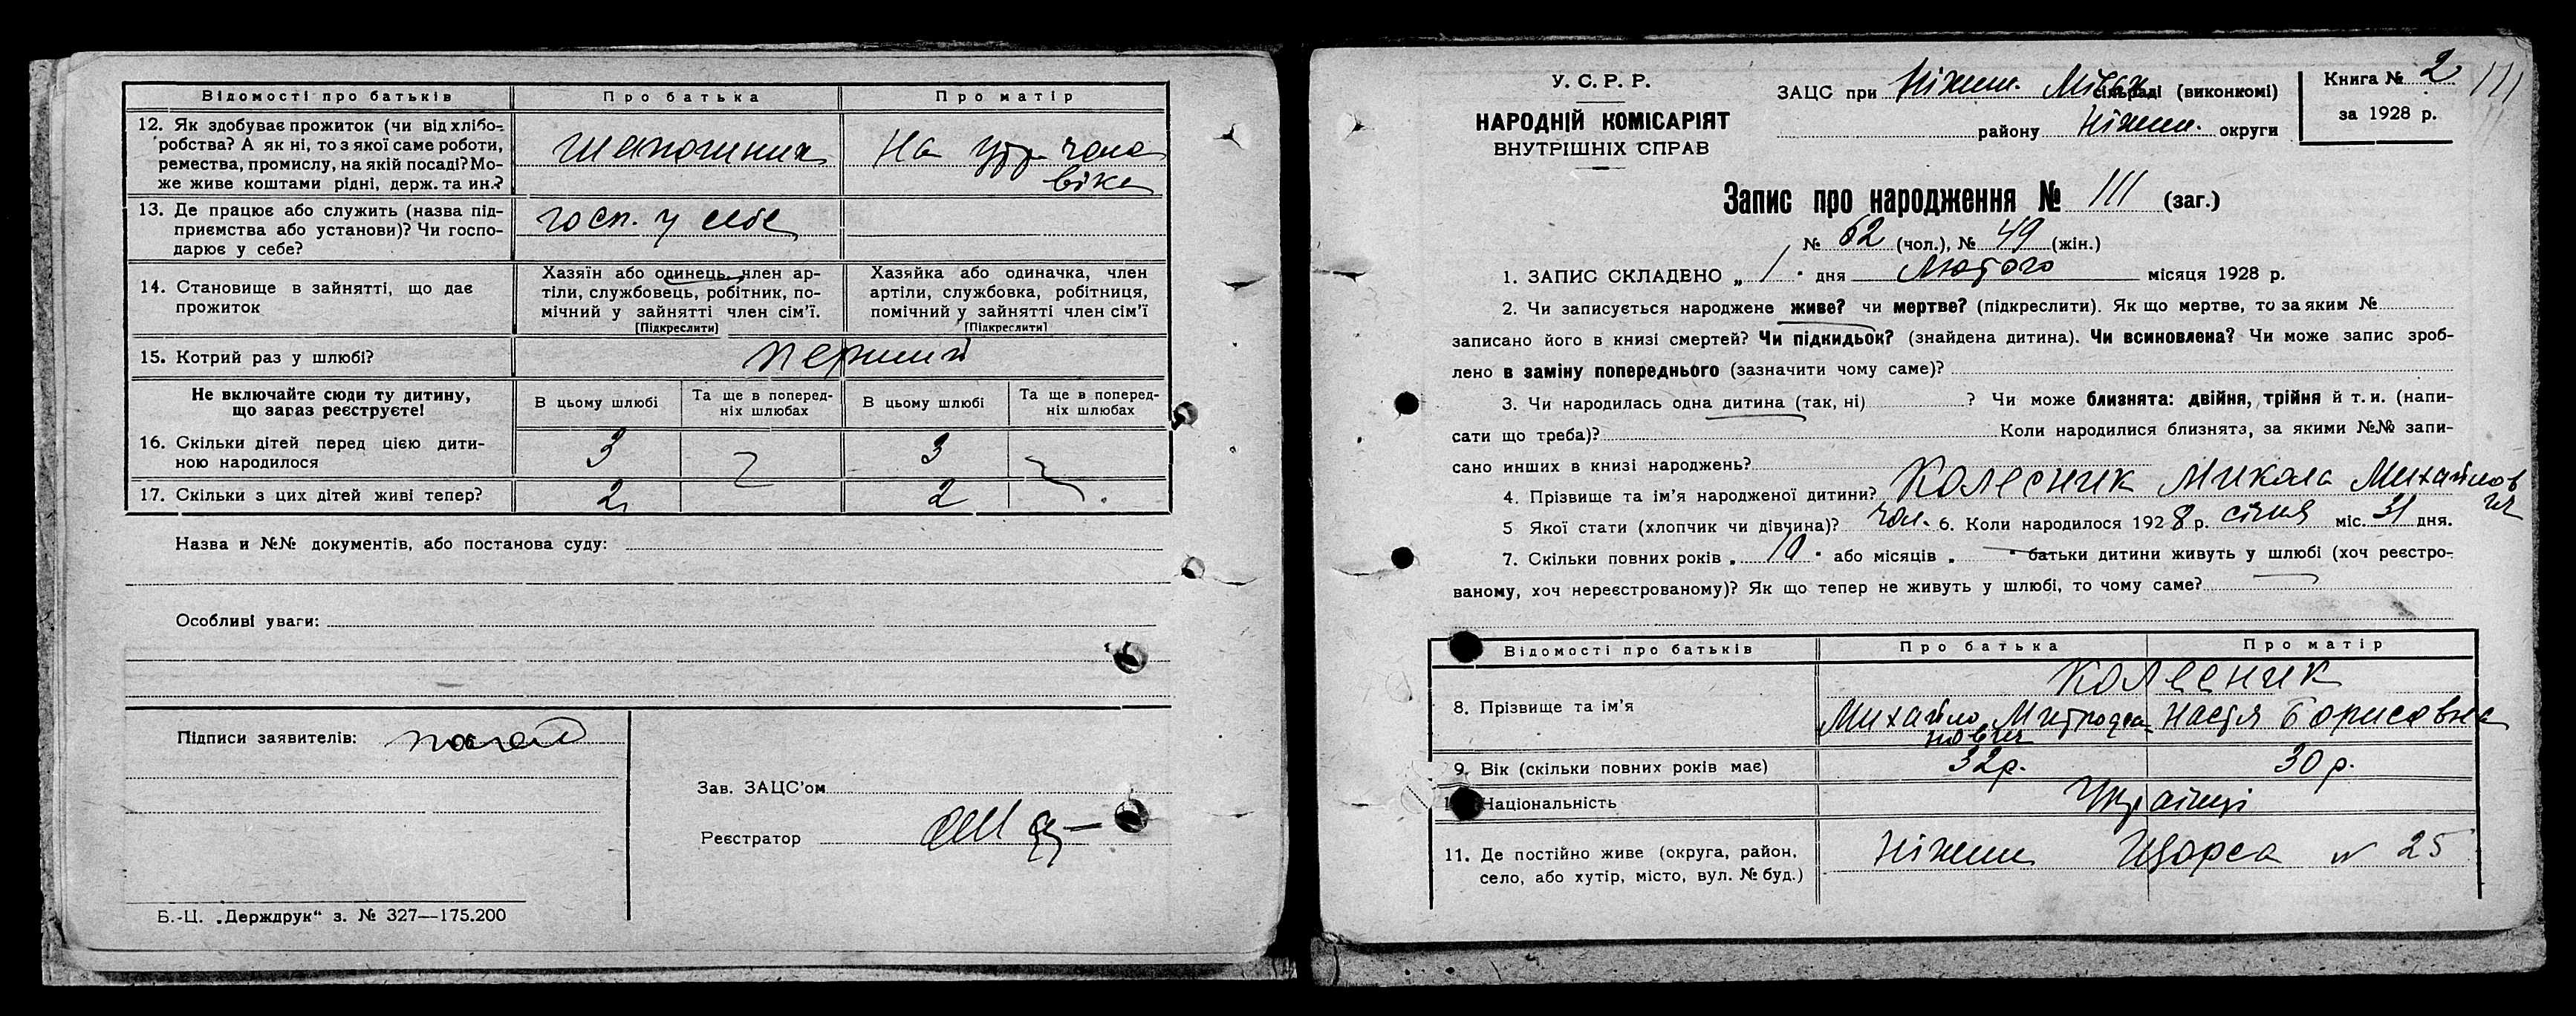 Відомості про батьків
Про батька
Про матір
12. Як здобуває прожиток (чи від хлібо-
робства? А як ні, то з якої саме роботи,
ремества, промислу, на якій посаді? Мо-
же живе коштами рідні, держ. та ин.?
шапошник
На утр. чоло
віка
13. Де працює або служить (назва під-
приємства або установи)? Чи госпо-
дарює у себе?
госп. у себе
14. Становище в зайнятті, що дає
прожиток
Хазяїн або одинець, член ар-
тіли, службовець, робітник, по-
мічний у зайнятті член сім'ї.
[Підкреслити]
Хазяйка або одиначка, член
артіли, службовка, робітниця,
помічний у зайнятті член сім'ї
[Підкреслити]
15. Котрий раз у шлюбі?
перший
Не включайте сюди ту дитину,
що зараз реєструєте!
В цьому шлюбі
Та ще в поперед-
ніх шлюбах
В цьому шлюбі
Та ще в поперед-
ніх шлюбах
16. Скільки дітей перед цією дити-
ною народилося
3
3
17. Скільки з цих дітей живі тепер?
2
2
Назва и №№ документів, або постанова суду:
Особливі уваги:
Підписи заявителів:
Зав. ЗАЦС'ом
Реєстратор
Б.-Ц. „Держдрук“ з. № 327—175.200
У. С. Р. Р.
НАРОДНІЙ КОМІСАРІЯТ
ВНУТРІШНІХ СПРАВ
ЗАЦС при Ніжин. сільраді (виконкомі)
району Ніжин. округи
Книга № 2
за 1928 р.
111
Запис про народження № 111 (заг.)
№ 62 (чол.), № 49 (жін.)
1. ЗАПИС СКЛАДЕНО „ 1 " дня Лютого місяця 1928 р.
2. Чи записується народжене живе? чи мертве? (підкреслити). Як що мертве, то за яким №
записано його в книзі смертей? Чи підкидьок? (знайдена дитина). Чи всиновлена? Чи може запис зроб-
лено в заміну попереднього (зазначити чому саме)?
3. Чи народилась одна дитина (так, ні) ? Чи може близнята: двійня, трійня й т. и. (напи-
сати що треба)? Коли народилися близнята, за якими №№ запи-
сано инших в книзі народжень?
4. Прізвище та ім'я народженої дитини? Колесник Микола Михайлов
ич
5 Якої стати (хлопчик чи дівчина)? чол. 6. Коли народилося 1928 р. січня міс. 31 дня.
7. Скільки повних років „ 10 " або місяців „ " батьки дитини живуть у шлюбі (хоч реєстро-
ваному, хоч нереєстрованому)? Як що тепер не живуть у шлюбі, то чому саме?
Відомості про батьків
Про батька
Про матір
8. Прізвище та ім'я
Колесник
Михайло Митрофа
нович
Настя Борисовна
9. Вік (скільки повних років має)
32 р.
30 р.
Національність
Українці
11. Де постійно живе (округа, район,
село, або хутір, місто, вул. № буд.)
Ніжин Щорса № 25